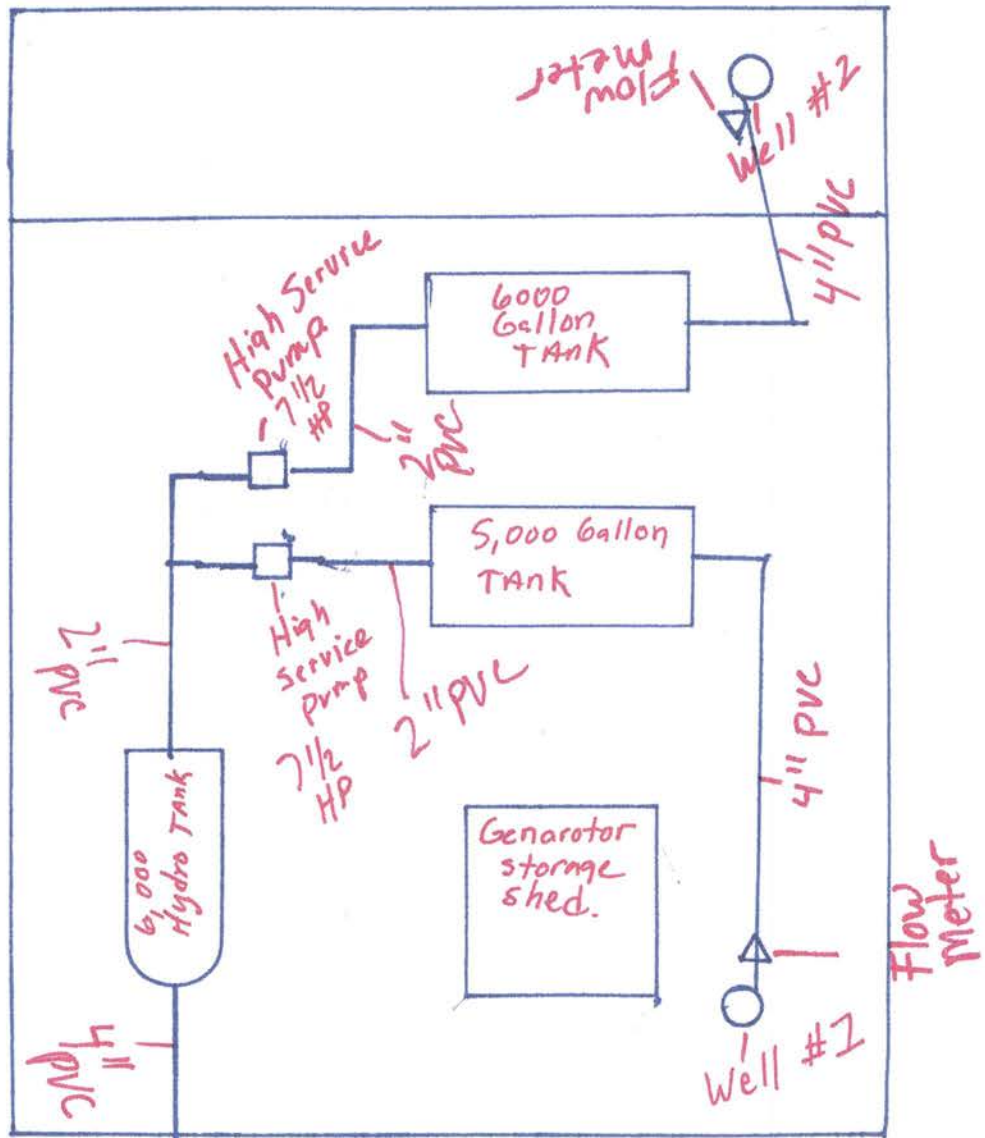 Flow
meter
Well #2
4" PVC
High Service
pump
7 1/2
HP
6000
Gallon
TAnk
2"
PVC
5,000 Gallon
TAnk
High
service
pump
7 1/2
HP
2" PVC
2"
pvc
4" PVC
6,000
Hydro TAnk
Genarotor
storage
shed.
Flow
Meter
Well #1
4"
pvc